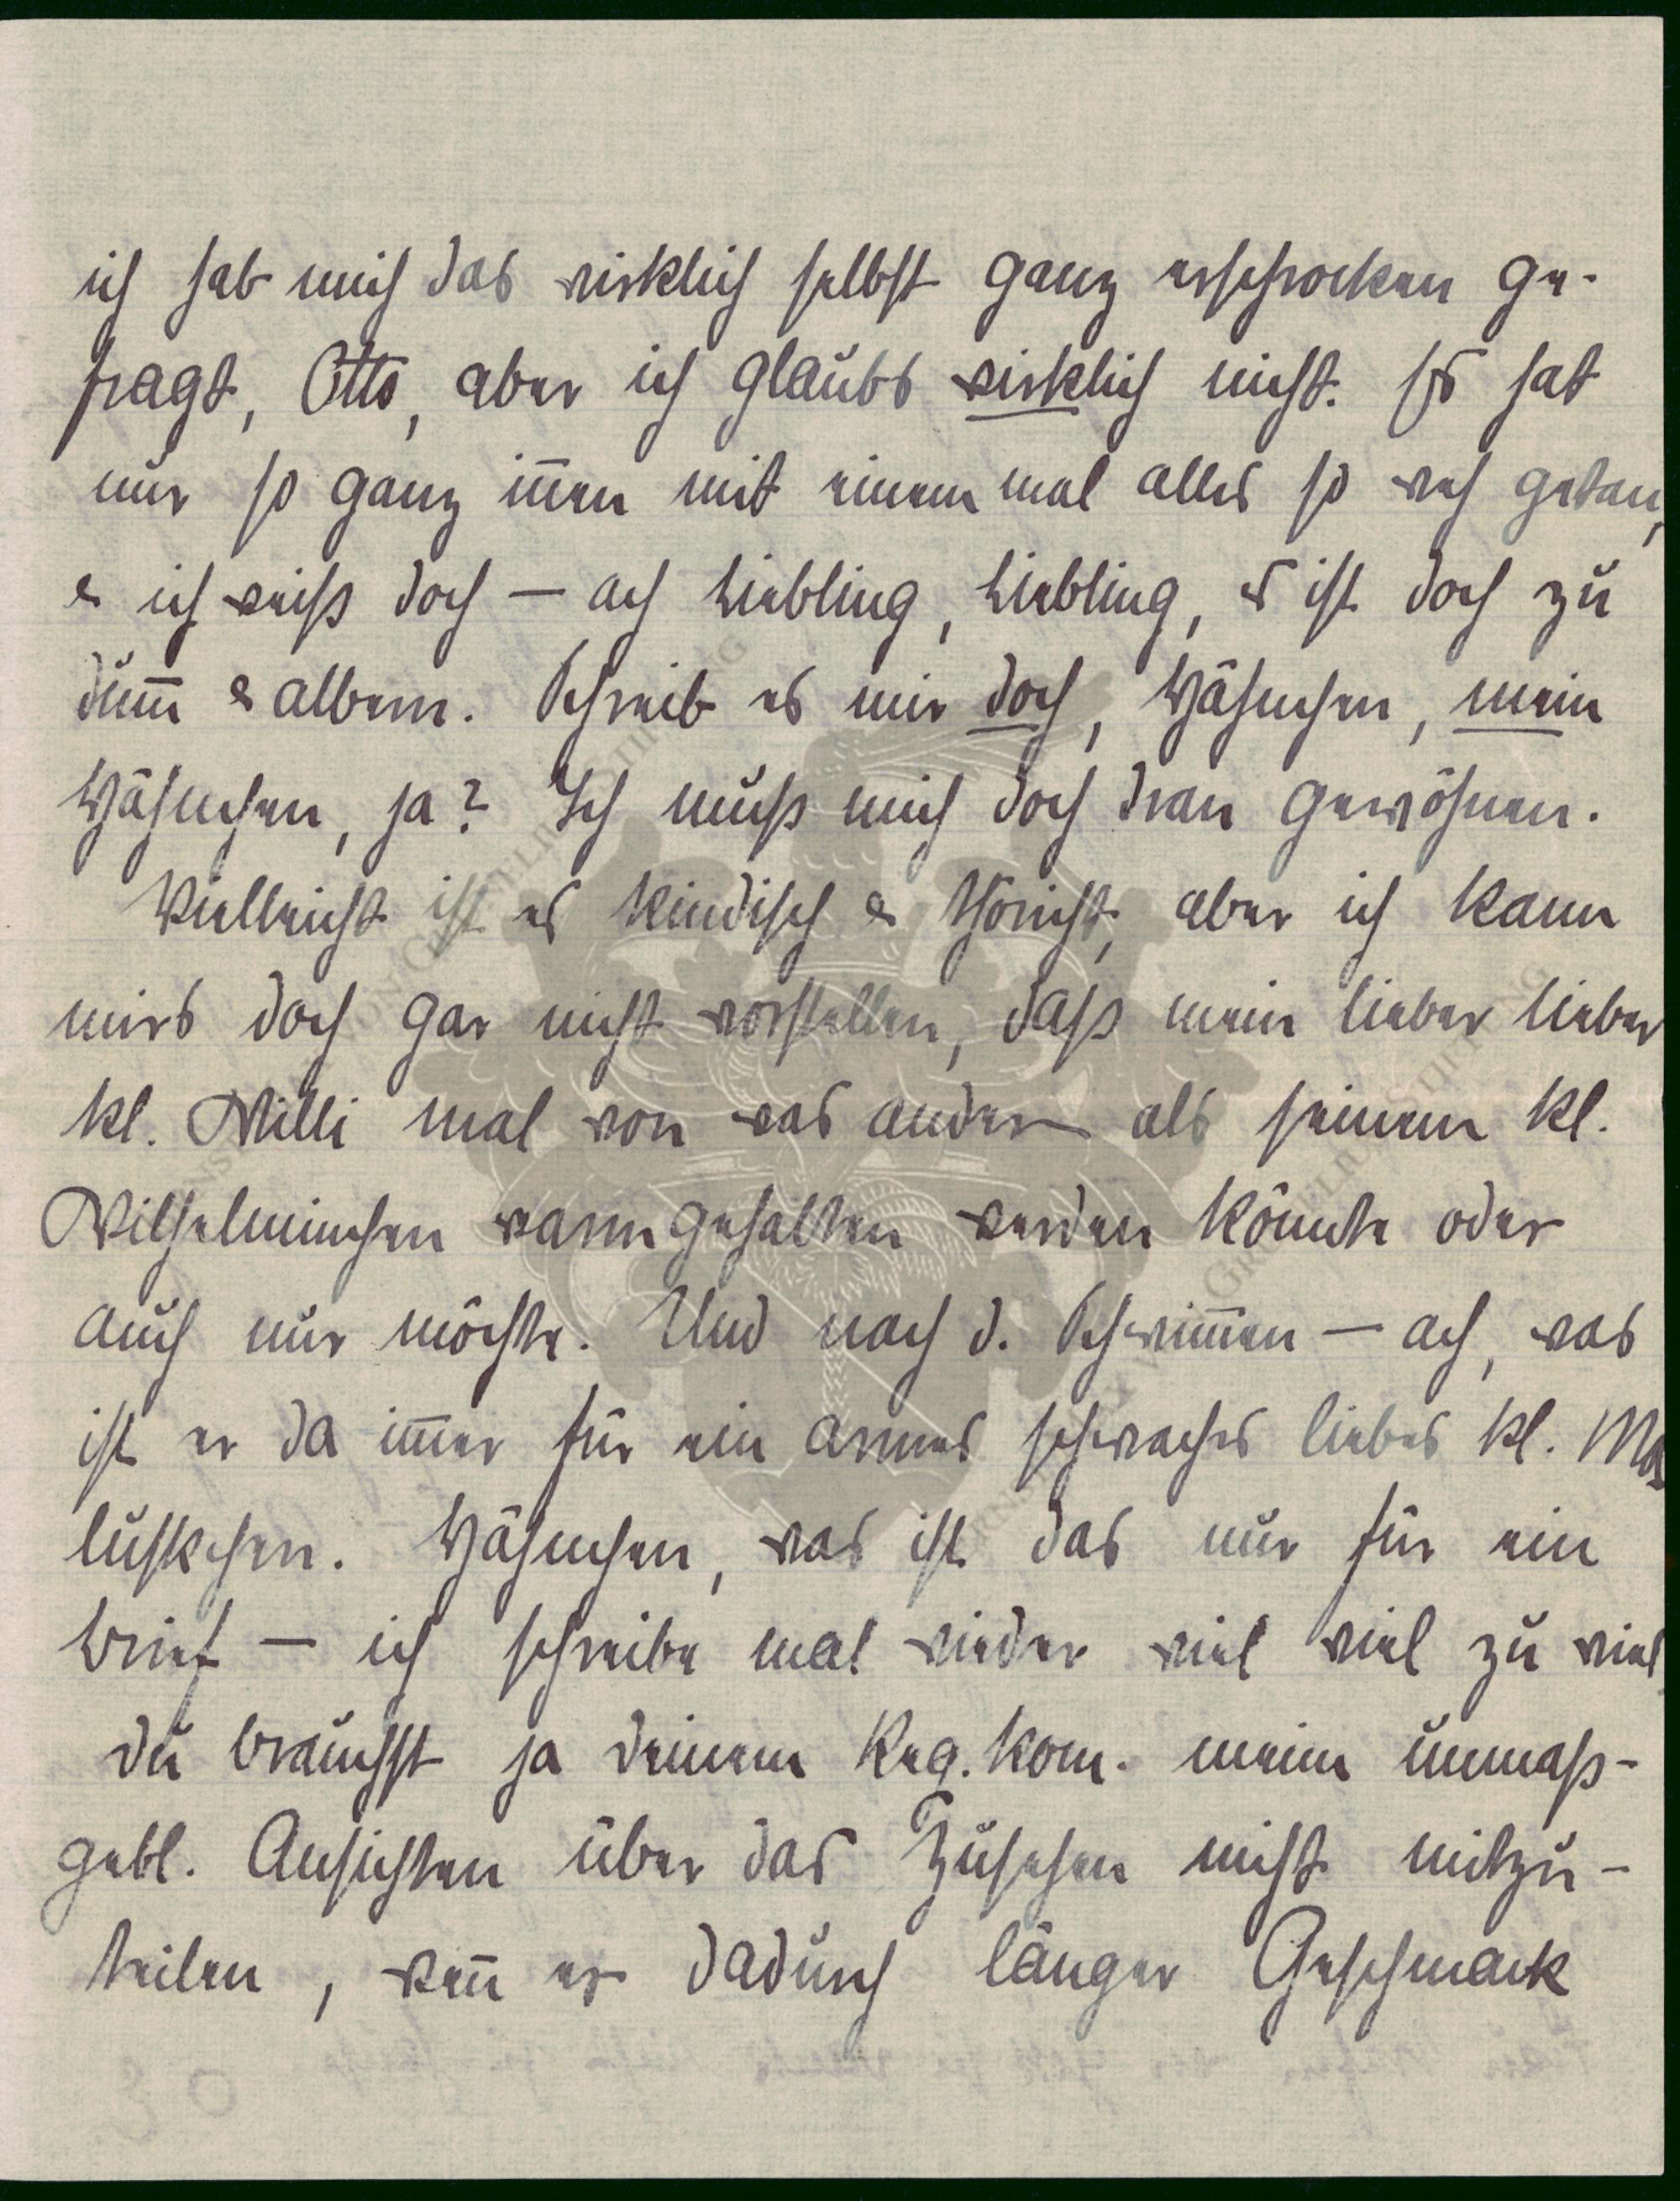 ich hab mich das wirklich selbst ganz erschrocken ge-
fragt, Otto, aber ich glaubs wirklich nicht. Es hat
nur so ganz innen mit einem mal alles so weh getan,
& ich weiß doch — ach Liebling, Liebling, es ist doch zu
dum̅ & albern. Schreib es mir doch, Hähnchen, mein
Hähnchen, ja? Ich muß mich doch dran gewöhnen.
Vielleicht ist es kindisch & thöricht, aber ich kann
mirs doch gar nicht vorstellen, daß mein lieber lieber
kl. Willi mal von was anderm als seinem kl.
Wilhelminchen warmgehalten werden könnte oder
auch nur möchte. Und nach d. Schwim̅en — ach, was
ist er da im̅er für ein armes schwaches liebes kl. Mo
luskchen. Hähnchen, was ist das nur für ein
Brief — ich schreibe mal wieder viel viel zu viel,
du brauchst ja deinem Reg. kom. meine unmaß-
gebl. Ansichten über das Zusehen nicht mitzu-
teilen, wen̅ er dadurch länger Geschmack